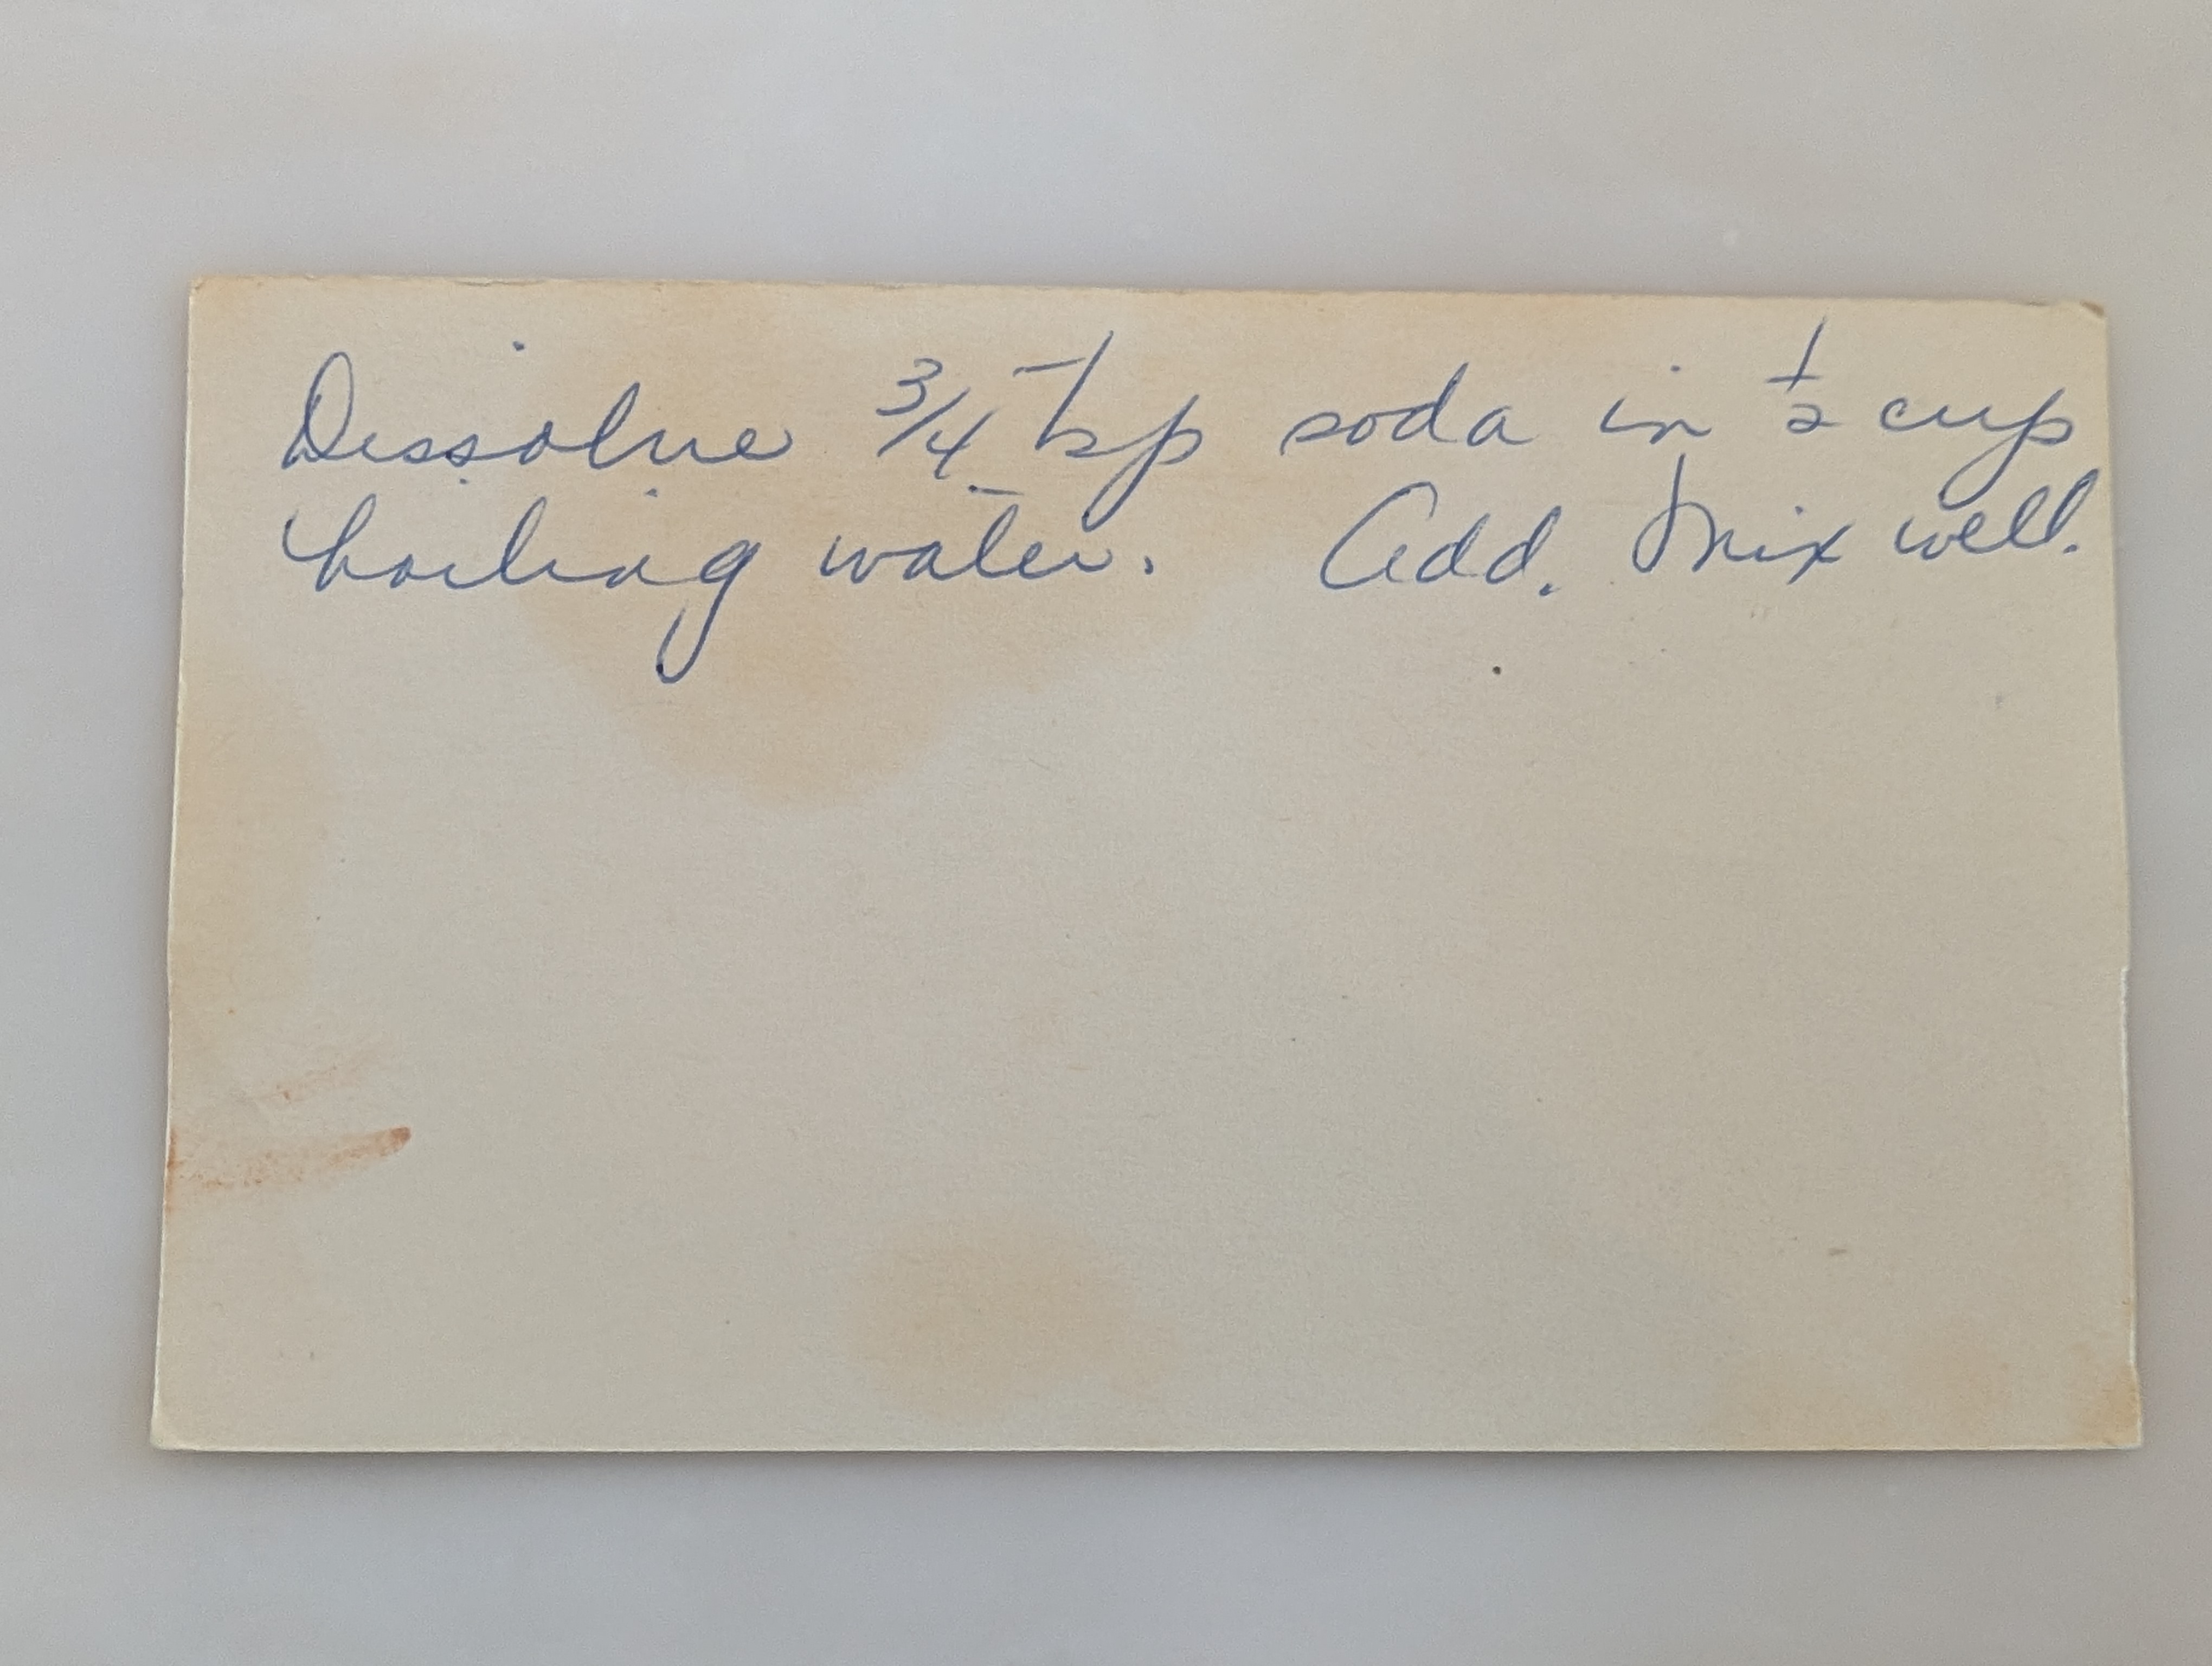 Dissolve 3/4 tsp soda in 1/2 cup
boiling water. Add. Mix well.